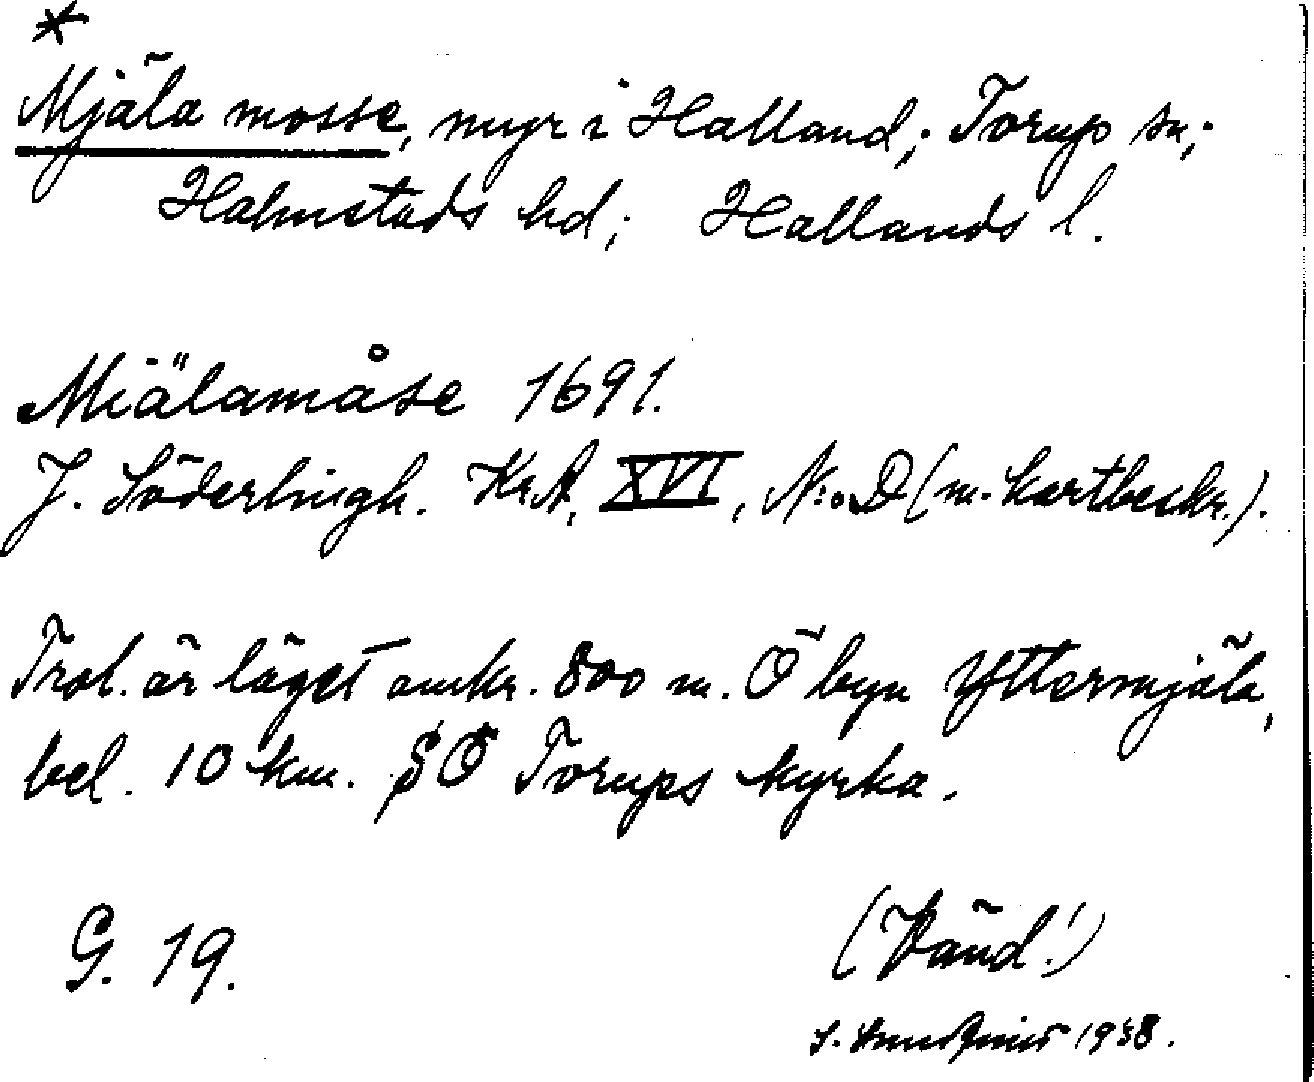 *
Mjäla mosse, myr i Halland; Torup sn;
Halmstads hd; Hallands l.
Miälamåse 1691.
J. Söderlingh. Kr.A. XVI, N:o D (m. kartbeskr.).
Trol. är läget omkr. 800 m. Ö byn Yttermjäla,
bel. 10 km. SÖ Torups kyrka.
G. 19.
(Vänd!)
1938.